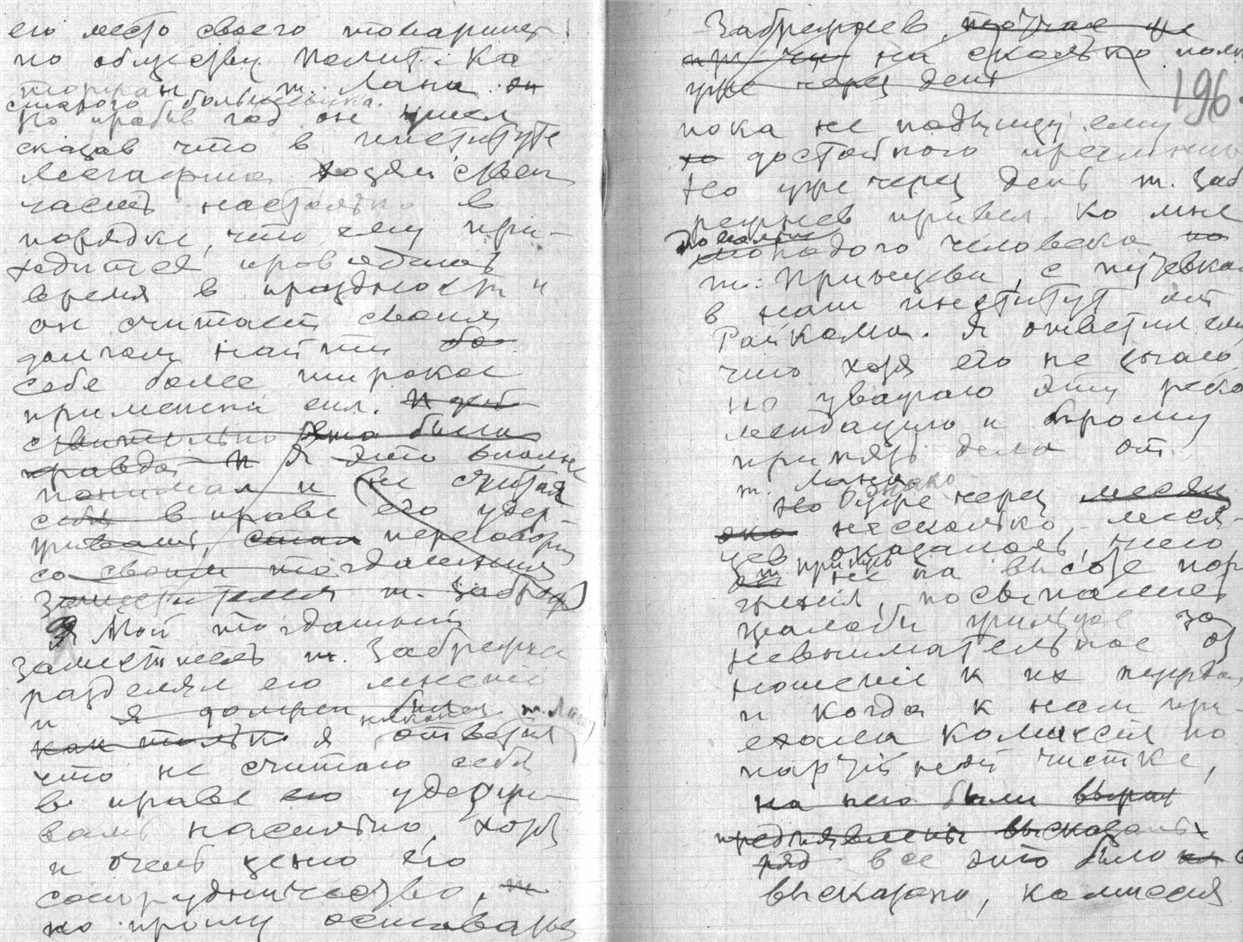 его место своего товарища
по обществу Полит. Ка
торжан т. Лана он
старого большевика.
Но пробыв год он ушел
сказав что в институте
Лесгафта хозяйствен
часть настолько в
порядке, что ему при-
ходится проводить
время в праздности и
он считает своим
долгом найти бо
себе более широкое
применение сил. И дей
ствительно это было
правда И Я это вполне
понимал и не считая
себя в праве его удер-
живать, стал переговоры
со своим тогдашним
заместителем т. Забреж
Я Мой тогдашний
заместитель т. Забрежне
разделял его мнение
и я должен был т. Лану
как только я ответил
что не считаю себя
в праве его удержи-
вать насильно, хотя
и очень ценю его
сотрудничество,
но прошу оставаться
Забрежнев
на сколько
уже через день
196
пока не подыщу ему
достойного преемника
Но уже через день т. Заб
режнев привел ко мне
молодого человека
т. Принцева, с путевкой
в наш институт от
Райкома. Я ответил ему
что хотя его не знаю,
но уважаю эту реко
мендацию и прошу
принять дела от
т. Лана.
Но однако уже через месяц
несколько меся-
цев оказалось, что
т. Принцев
не на высоте поло
жения, посыпались
жалобы за
невнимательное от
ношение к их нуждам,
и когда к нам при-
ехала комиссия по
партийной чистке,
на него были
предъявлены высказаны
ряд все это было
высказано, комиссия